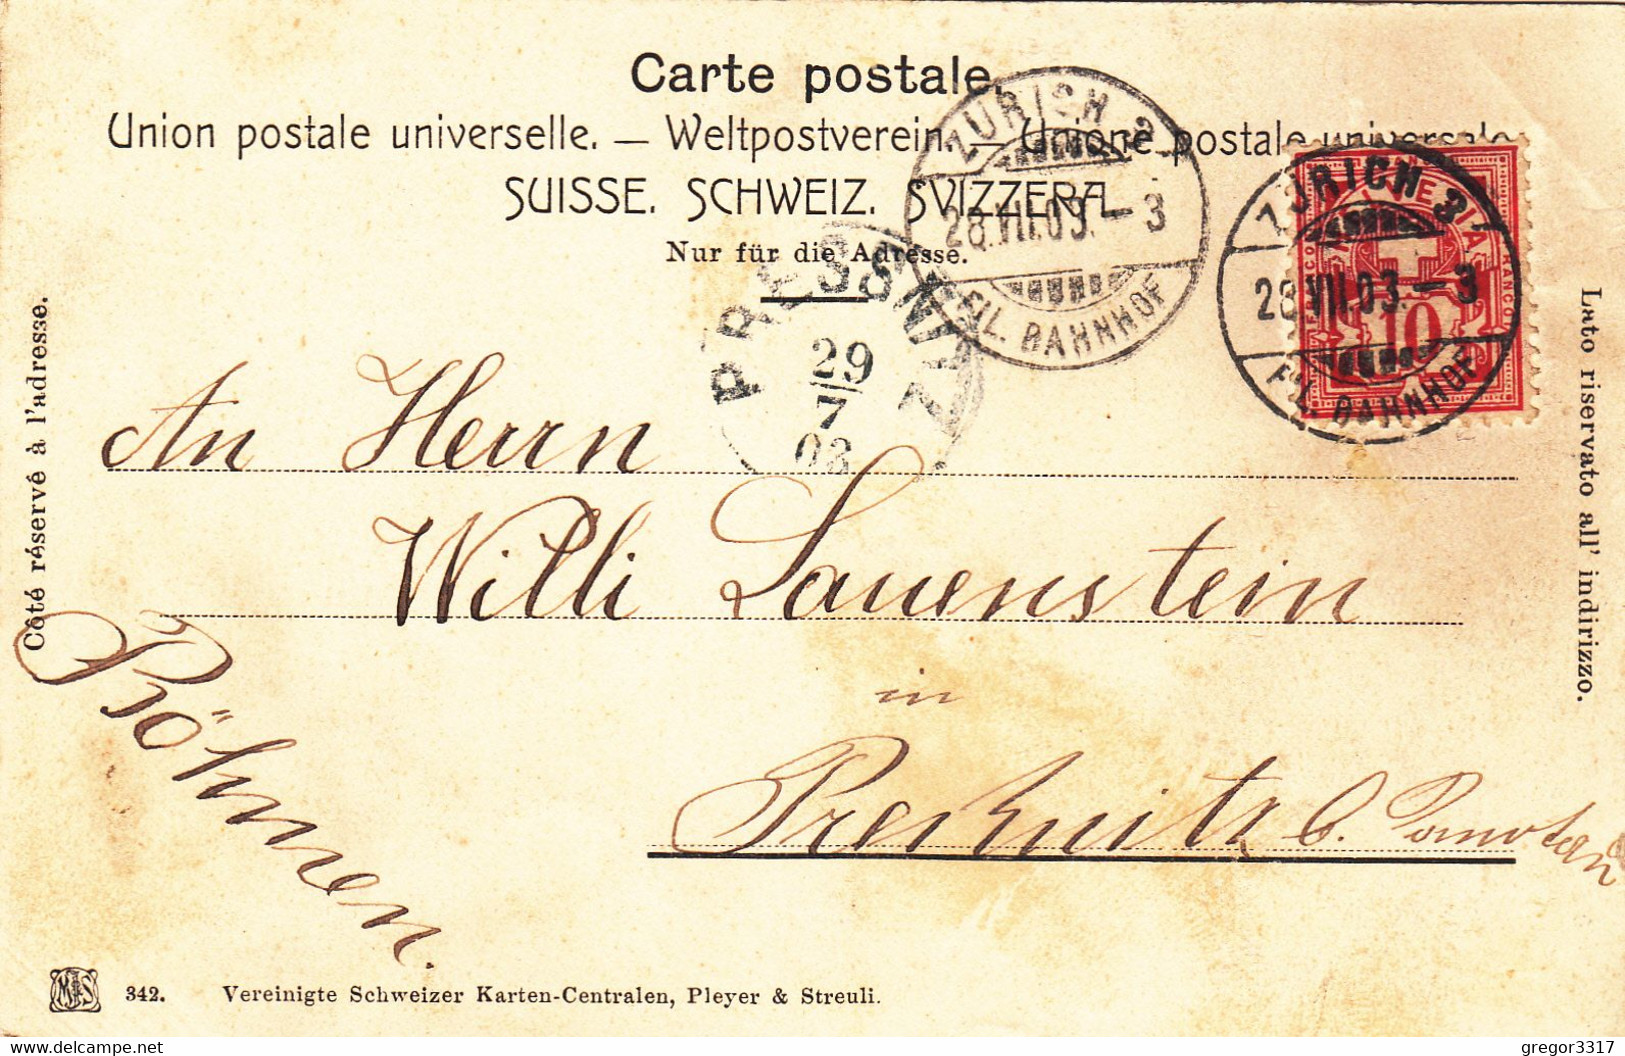 Carte postale.
Union postale universelle. — Weltpostverein. — Unione postale universale
SUISSE. SCHWEIZ. SVIZZERA
Nur für die Adresse.
ZÜRICH 3
28.VII.03.–3
FIL. BAHNHOF
ZÜRICH 3
28.VII.03.–3
FIL. BAHNHOF
FRANCO
HELVETIA
FRANCO
10
PRESSNITZ
29
7
03
Côté réservé à l'adresse.
Lato riservato all' indirizzo.
An Herrn
Willi Lauenstein
in
Pressnitz b. Komotau
Böhmen.
342. Vereinigte Schweizer Karten-Centralen, Pleyer & Streuli.
www.delcampe.net
gregor3317